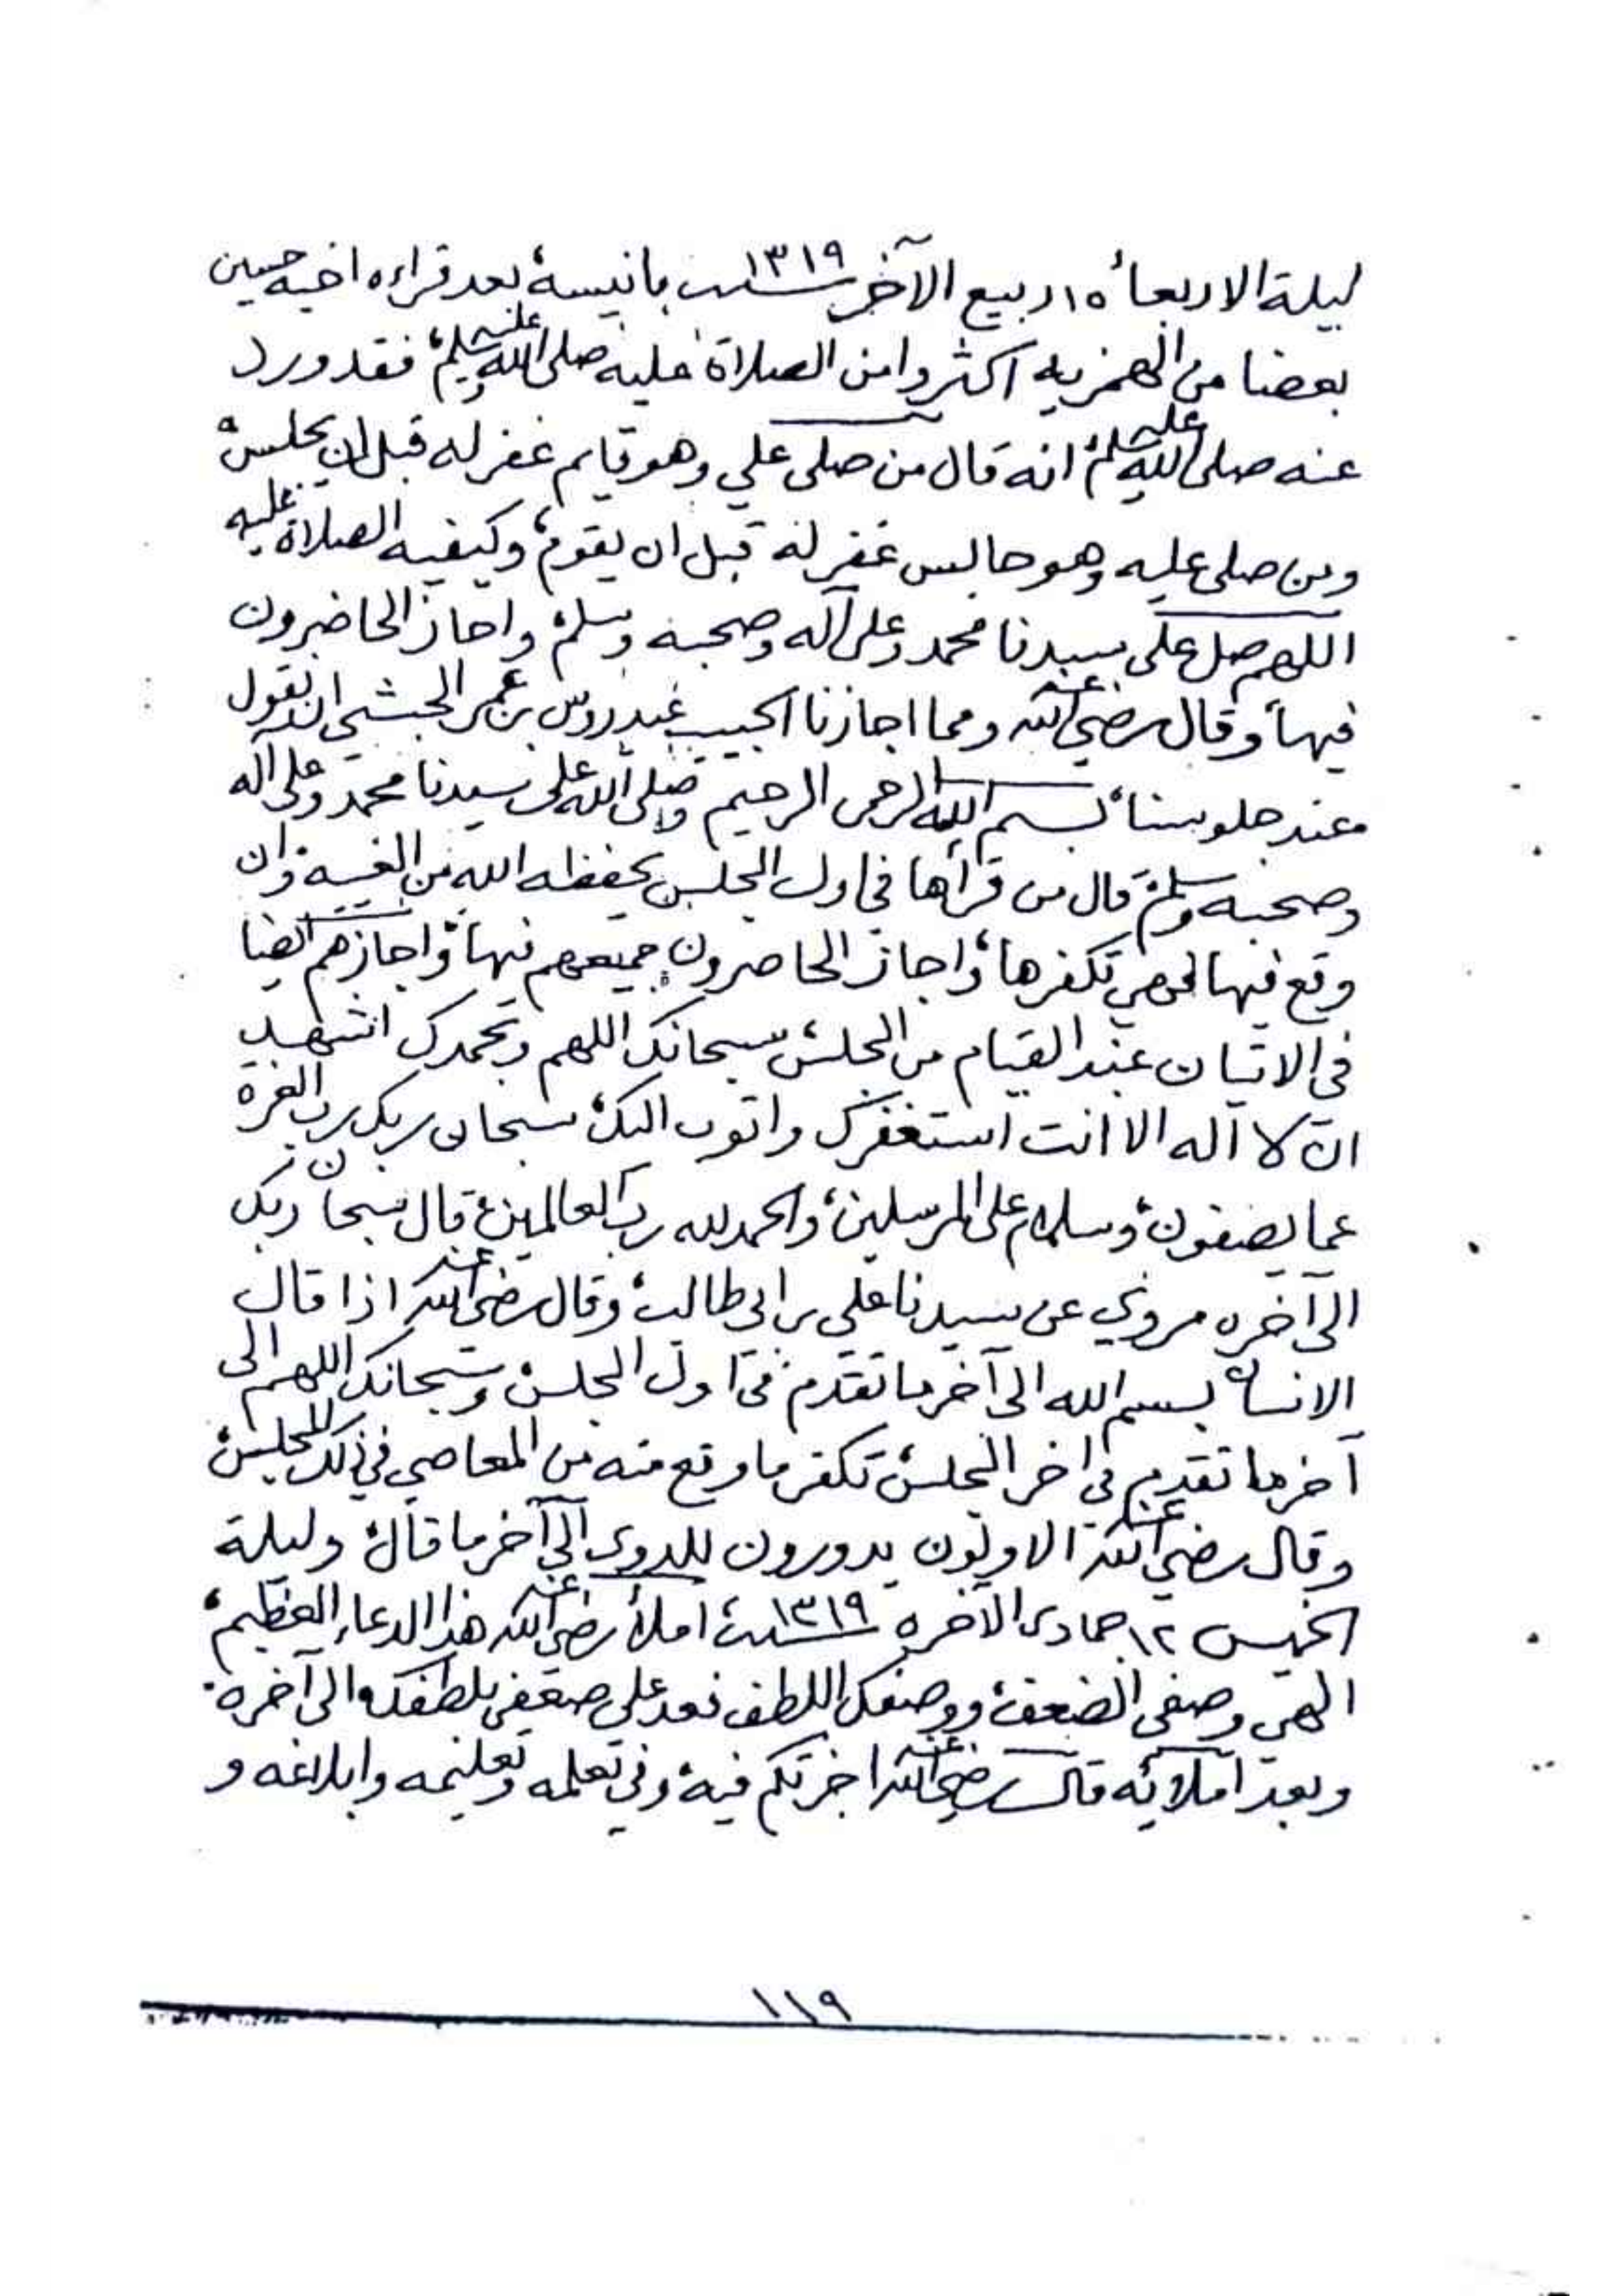 ليلة الاربعاء ١٥ ربيع الآخر سنة ١٣١٩ بانيسة، بعد قراءه اخيه حسين
بعضا من الهمزيه اكثروا من الصلاة عليه صلى الله عليه وسلم، فقد ورد
عنه صلى الله عليه وسلم انه قال من صلى علي وهو قايم غفر له قبل ان يجلس،
ومن صلى عليه وهو جالس غفر له قبل ان يقوم، وكيفيه الصلاة عليه
اللهم صل على سيدنا محمد وعلى آله وصحبه وسلم، واجاز الحاضرون
فيها، وقال رضي الله عنه ومما اجازنا الحبيب عيدروس بن عمر الحبشي ان نقول
عند جلوسنا، بسم الله الرحمن الرحيم وصلى الله على سيدنا محمد وعلى آله
وصحبه وسلم، قال من قرأها في اول المجلس يحفظه الله من الغيبة، وان
وقع فيها فهي تكفرها، واجاز الحاضرون جميعهم فيها، واجازهم ايضا
في الاتيان عند القيام من المجلس، سبحانك اللهم وبحمدك اشهد
ان لا اله الا انت استغفرك واتوب اليك، سبحان ربك رب العزة
عما يصفون، وسلام على المرسلين، والحمد لله رب العالمين، قال سبحان ربك
الى آخره مروي عن سيدنا علي بن ابي طالب، وقال رضي الله عنه اذا قال
الانسان بسم الله الى آخر ما تقدم، في اول المجلس، وسبحانك اللهم الى
آخر ما تقدم في اخر المجلس، تكفر ما وقع منه من المعاصي في ذلك المجلس،
وقال رضي الله عنه الاولون يدورون للدوى الى آخر ما قال، وليلة
الخميس ١٢ جمادى الآخره سنة ١٣١٩، املأ رضي الله عنه هذا الدعاء العظيم،
الهي وصفي الضعف، ووصفك اللطف فعد على ضعفي بلطفك، الى آخره،
وبعد املائه قال رضي الله عنه اجزتكم فيه، وفي تعلمه وتعليمه وابلاغه و
١١٩